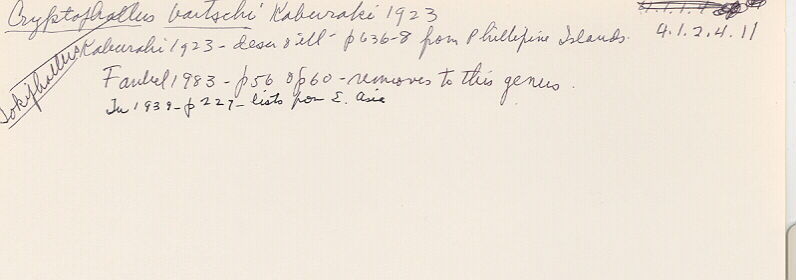 Cryptophallus bartschi Kaburaki 1923
4.1.2.4.11
Kaburaki 1923 - descr & ill - p 636-8 from Phillipine Islands.
Faubel 1983 - p 56 & p 60 - removes to this genus.
In 1939 - p 227 - lists from E. Asia